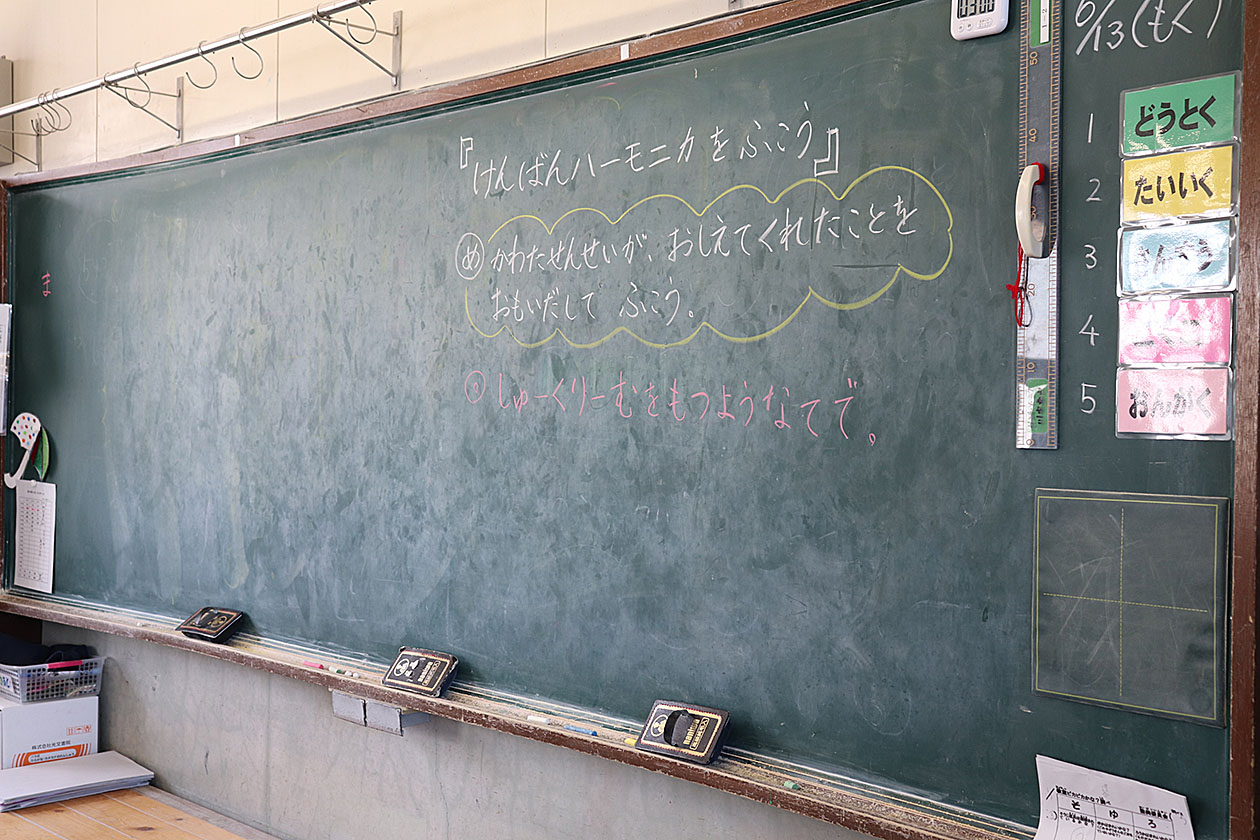 『けんばんハーモニカをふこう』
め かわたせんせいが、おしえてくれたことを
おもいだして ふこう。
しゅーくりーむをもつようなてで。
ま
6/13(もく)
1 どうとく
2 たいいく
3
4
5 おんがく
50
40
20
10
株式会社光文書院
そ ゆ ろ